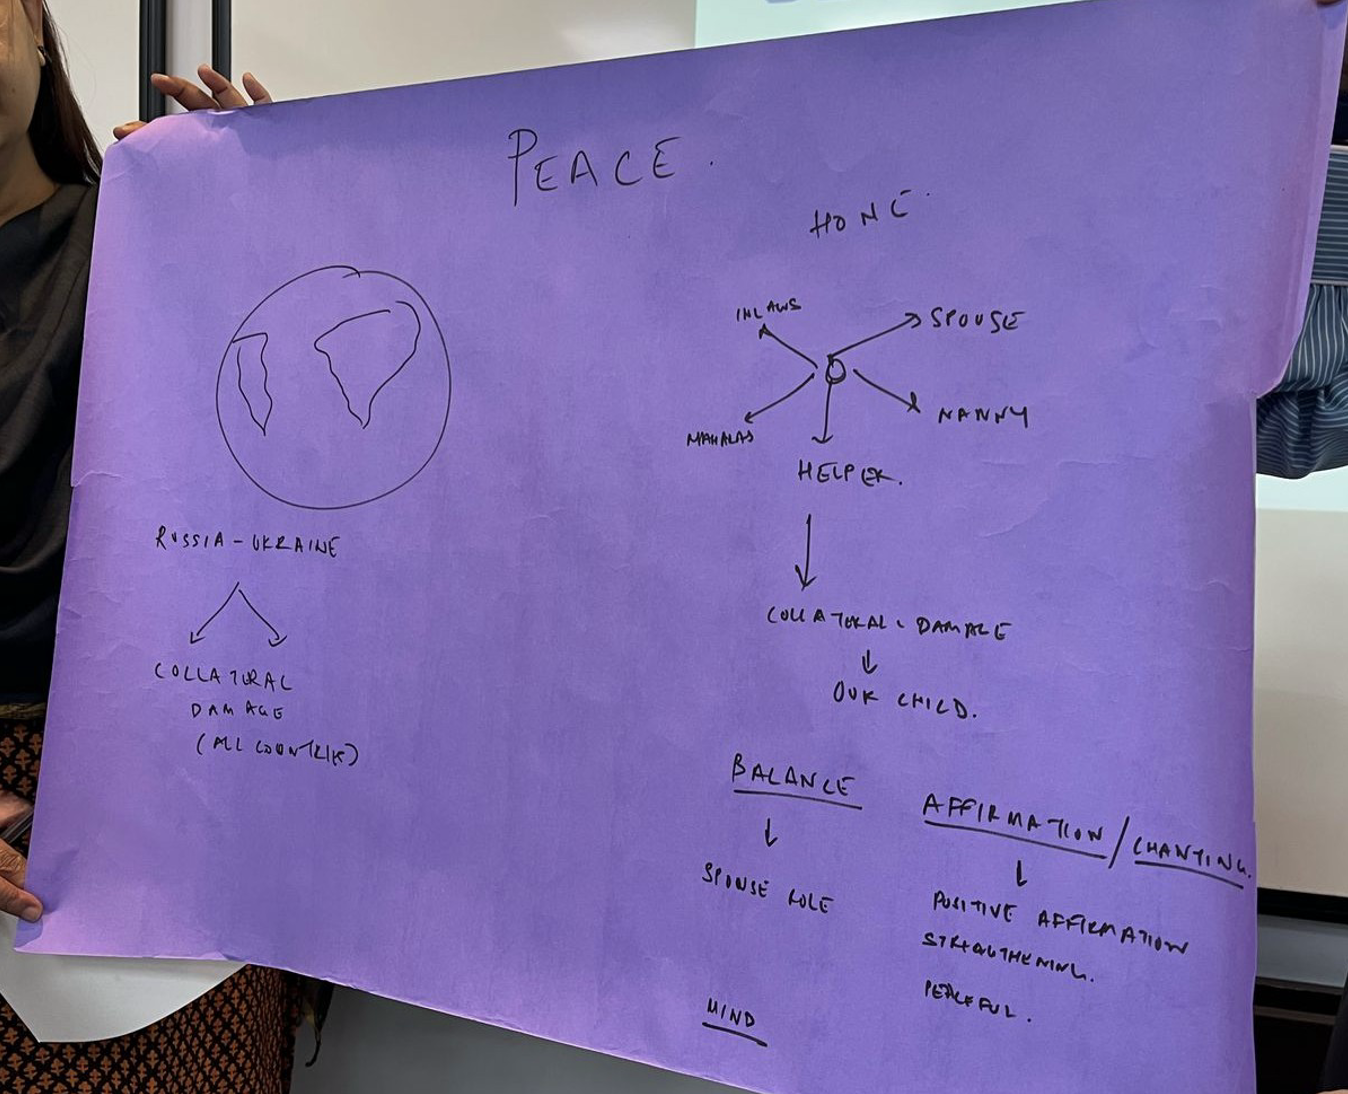 PEACE.
HOME.
INLAWS
SPOUSE
NANNY
HELPER.
RUSSIA - UKRAINE
COLLATORAL
DAMAGE
(ALL COUNTRIES)
COLLATORAL DAMAGE
OUR CHILD.
BALANCE
SPOUSE ROLE
AFFIRMATION / CHANTING.
POSITIVE AFFIRMATION
STRENGTHENING.
PEACEFUL.
MIND